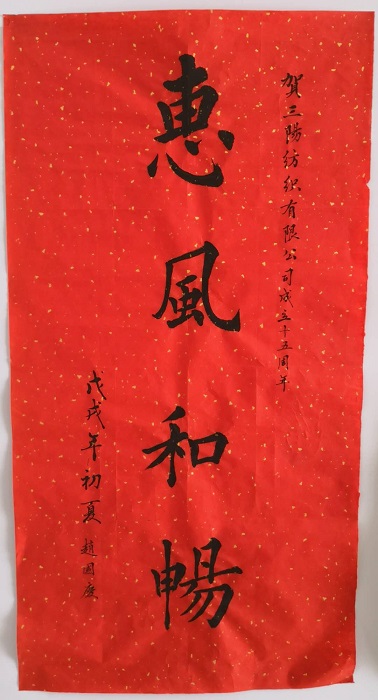 賀三陽紡织有限公司成立十五周年
惠風和暢
戊戌年初夏 趙国慶